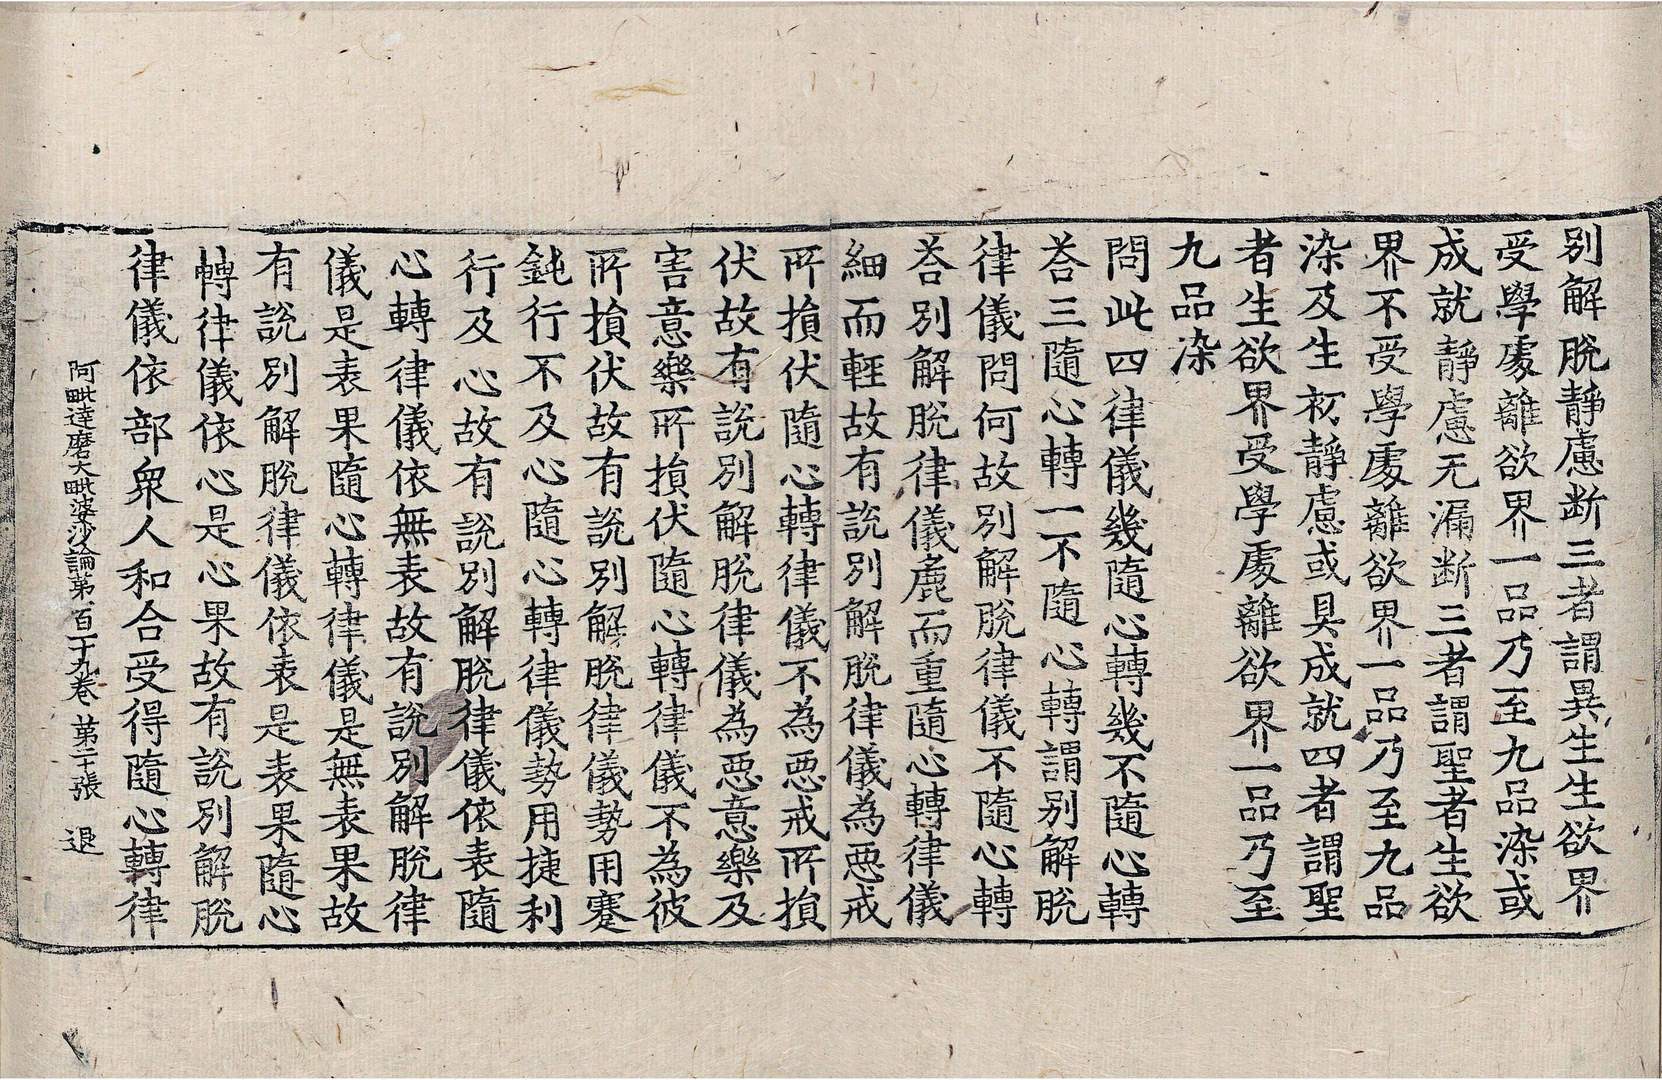 别解脱静慮断三者謂異生生欲界
受學處離欲界一品乃至九品染或
成就静慮无漏断三者謂聖者生欲
界不受學處離欲界一品乃至九品
染及生初静慮或具成就四者謂聖
者生欲界受學處離欲界一品乃至
九品染
問此四律儀幾隨心轉幾不隨心轉
荅三隨心轉一不隨心轉謂别解脱
律儀問何故别解脱律儀不隨心轉
荅别解脱律儀麁而重隨心轉律儀
細而輕故有說别解脱律儀為惡戒
所損伏隨心轉律儀不為惡戒所損
伏故有說别解脱律儀為惡意樂及
害意樂所損伏隨心轉律儀不為彼
所損伏故有說别解脱律儀勢用蹇
鈍行不及心隨心轉律儀勢用捷利
行及心故有說别解脱律儀依表隨
心轉律儀依無表故有說别解脱律
儀是表果隨心轉律儀是無表果故
有說别解脱律儀依表是表果隨心
轉律儀依心是心果故有說别解脱
律儀依部衆人和合受得隨心轉律
阿毗達磨大毗婆沙論第一百十九卷 第二十張 退